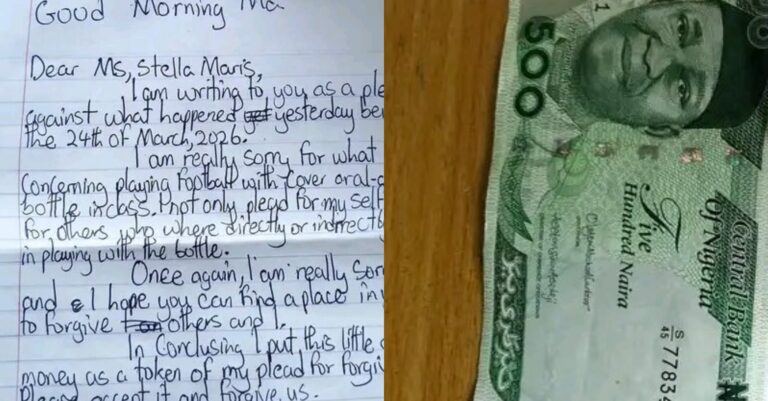 Good Morning Ma
Dear Ms, Stella Maris,
I am writing to, you as a ple
against what happened yesterday be
the 24th of March, 2026.
I am really sorry for what
concerning playing football with cover oral-
bottle in class. I not only plead for my self
for others who where directly or indirectly
in playing with the bottle.
Once again, I am really sor
and I hope you can find a place in y
to forgive others and I.
In Conclusing I put this little
money as a token of my plead for forgiv
Please accept it and forgive us.
500
1
Central Bank
Of Nigeria
Five
Hundred Naira
S/45 77834
N